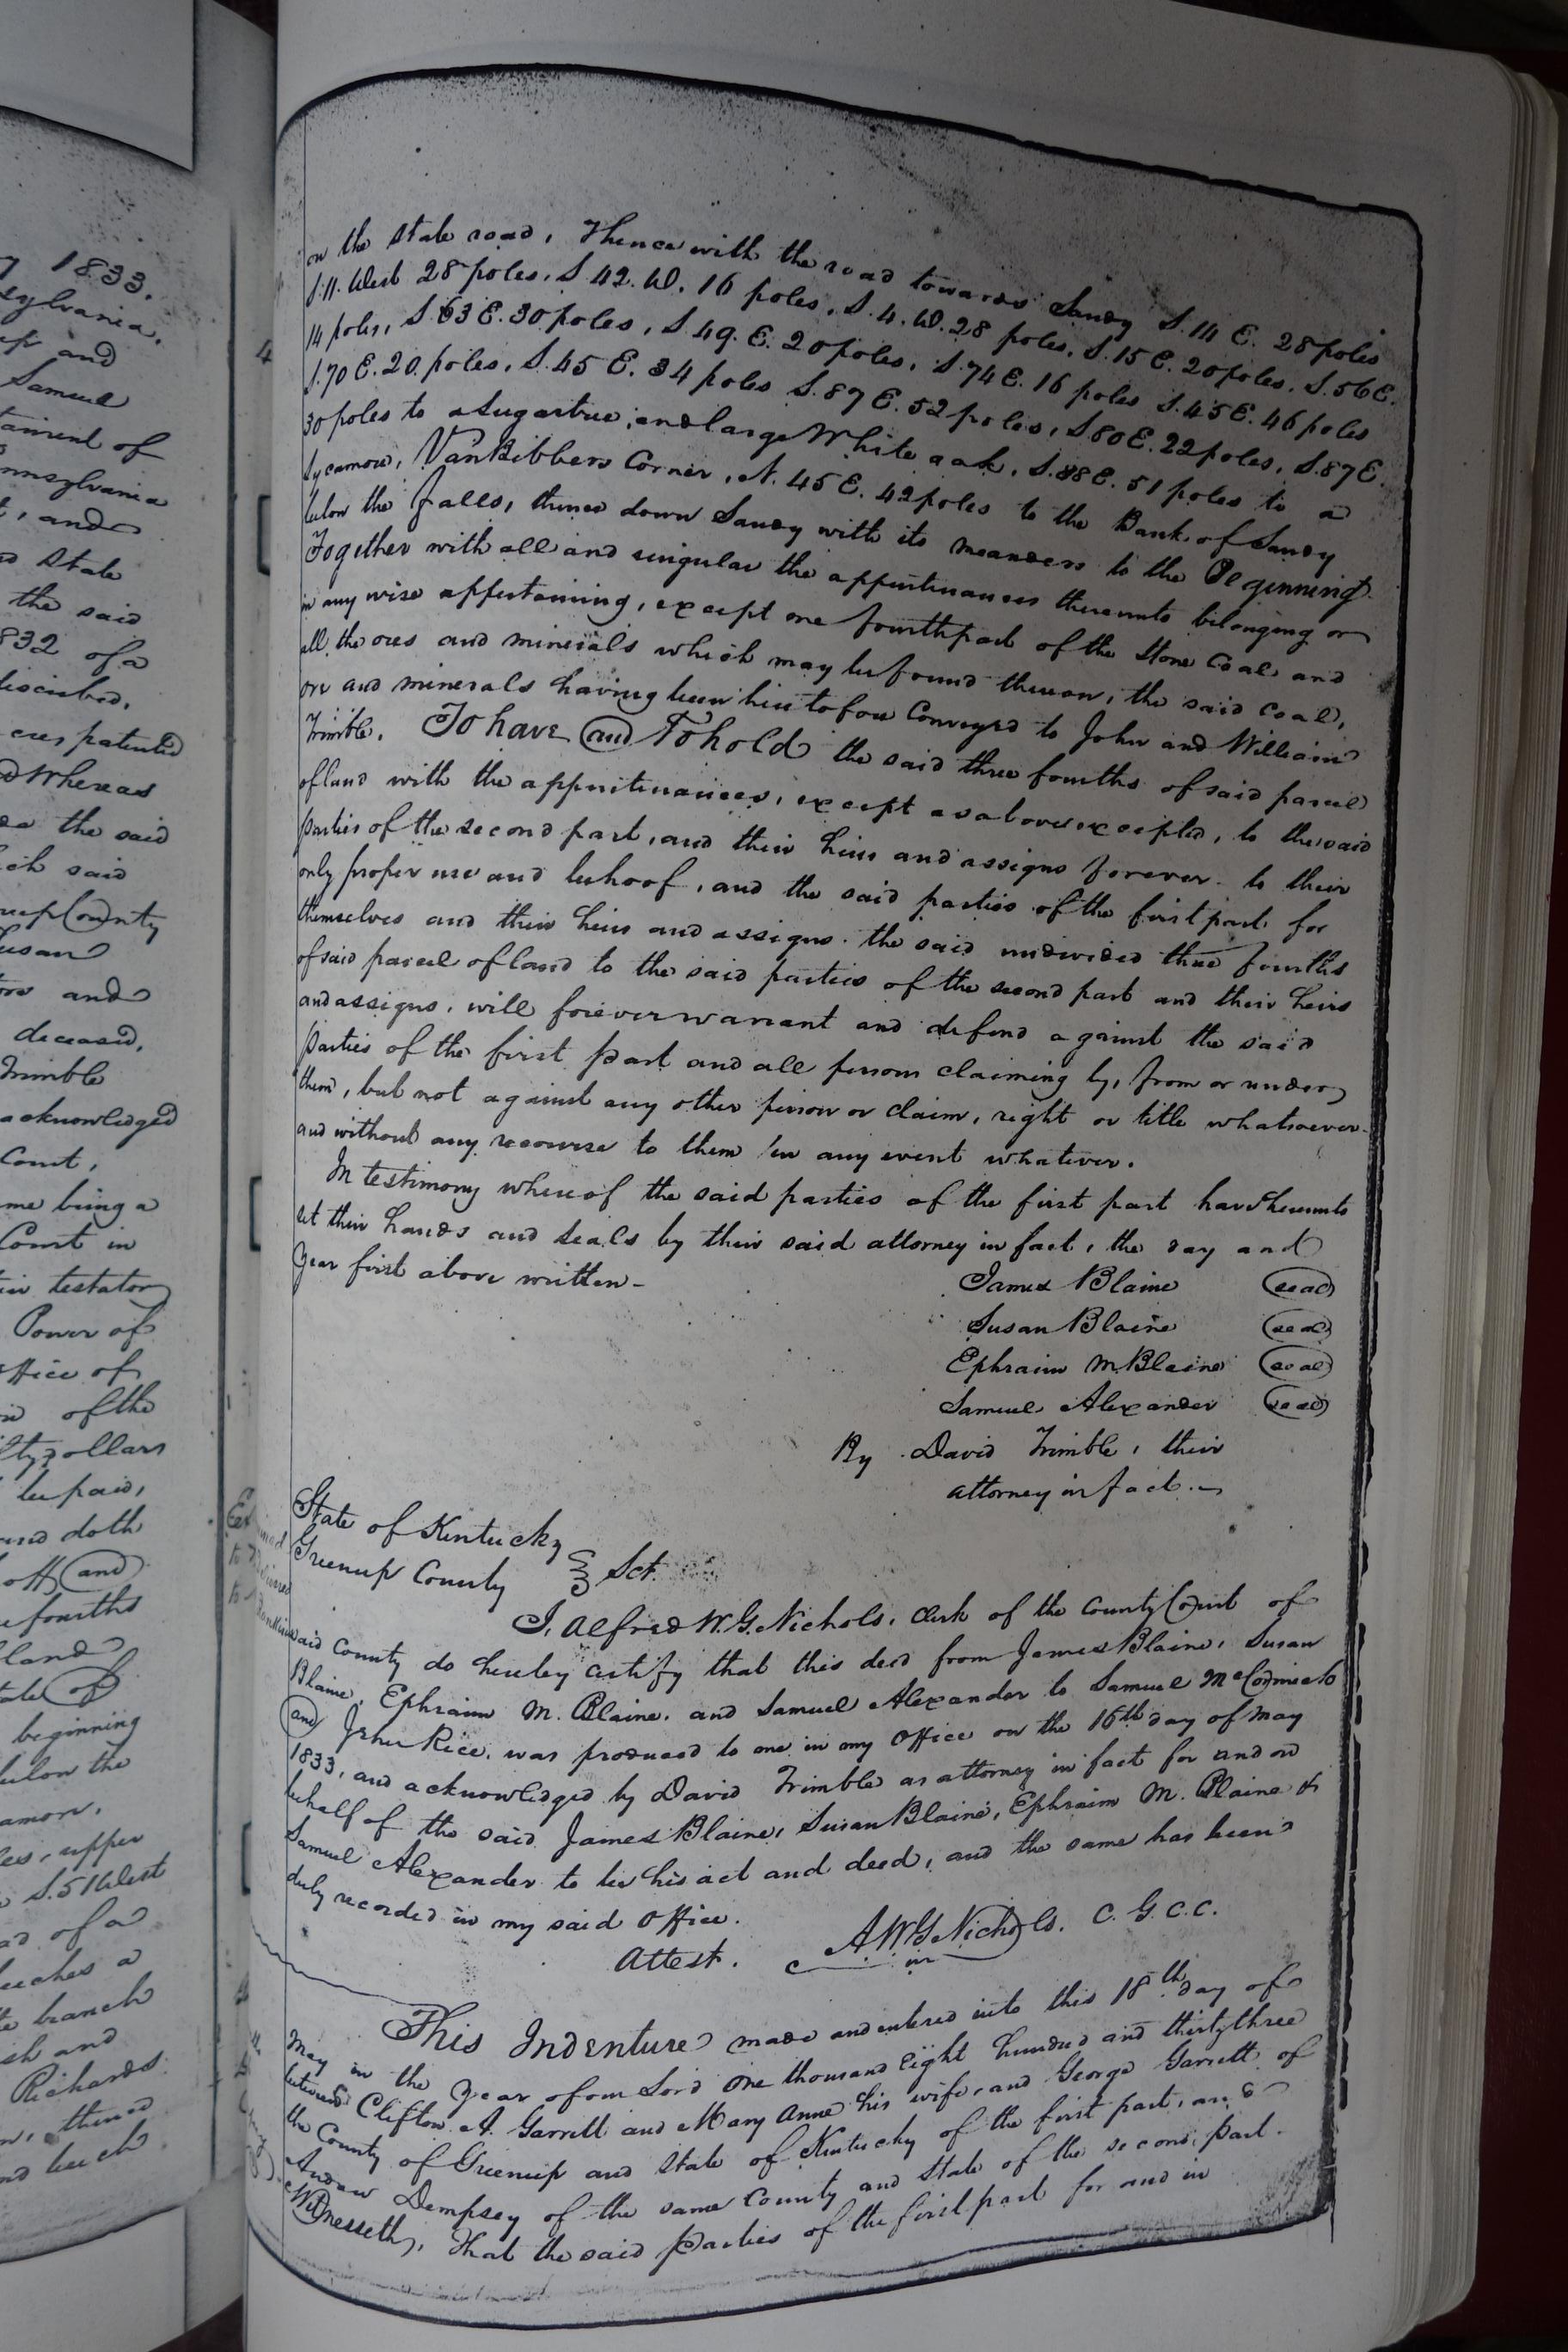 7 1833.
sylvania.
up and
Samuel
tament of
nnsylvania
t, and
State
the said
832 of a
discribed,
cres patented
Whereas
the said
ch said
nup County
usan
and
deceased,
Trimble
acknowledged
Court,
me being a
Court in
testator
Power of
ffice of
of the
fty dollars
be paid,
and doth
off and
fourths
land
of
beginning
below the
camore,
les, upper
S. 51 West
of a
beeches a
branch
sh and
Richards
thence
nd beech
4
on the State road, Thence with the road towards Sandy S. 14 E. 28 poles
S. 11. West 28 poles, S. 42. W. 16 poles, S. 4. W. 28 poles, S. 15 E. 20 poles, S. 56 E.
14 poles, S. 63 E. 30 poles, S 49. E. 20 poles, S. 74 E. 16 poles S. 45 E. 46 poles
S. 70 E. 20. poles, S. 45 E. 34 poles S. 87 E. 52 poles, S 80 E. 22 poles, S. 87 E.
30 poles to a Sugartree, and large White oak, S. 88 E. 51 poles to a
Sycamore, VanBibbers Corner, N. 45 E. 42 poles to the Bank of Sandy
below the falls, thence down Sandy with its meanders to the Beginning.
Together with all and singular the appurtenances thereunto belonging or
in any wise appertaining, except one fourth part of the Stone Coal and
all the ores and minerals which may be found thereon, the said Coal,
ore and minerals having been heretofore Conveyed to John and William
Trimble. To have and To hold the said three fourths of said parcel
of land with the appurtenances, except as above excepted, to the said
parties of the second part, and their heirs and assigns forever to their
only proper use and behoof, and the said parties of the first part for
themselves and their heirs and assigns. the said undivided three fourths
of said parcel of land to the said parties of the second part and their heirs
and assigns, will forever warrant and defend against the said
parties of the first part and all persons claiming by, from or under
them, but not against any other person or claim, right or title whatsoever.
and without any recourse to them in any event whatever.
In testimony whereof the said parties of the first part have hereunto
set their hands and seals by their said attorney in fact, the day and
Year first above written—
James Blaine seal
Susan Blaine seal
Ephraim M Blaine seal
Samuel Alexander seal
By David Trimble, their
attorney in fact.
State of Kentucky
Greenup County } Sct.
I, Alfred W. G. Nichols, Clerk of the County Court of
said County do hereby certify that this deed from James Blaine, Susan
Blaine, Ephraim M. Blaine, and Samuel Alexander to Samuel McCormick
and John Rice, was produced to me in my Office on the 16th day of May
1833, and acknowledged by David Trimble as attorney in fact for and on
behalf of the said James Blaine, Susan Blaine, Ephraim M. Blaine &
Samuel Alexander to be his act and deed, and the same has been
duly recorded in my said Office.
Attest. A W G Nichols. C. G. C. C.
This Indenture made and entered into this 18th day of
May in the Year of our Lord One thousand Eight hundred and thirty three
between Clifton A. Garrett and Mary Anne his wife, and George Garrett of
the County of Greenup and State of Kentucky of the first part, and
Andrew Dempsey of the same County and State of the second part.
Witnesseth, That the said Parties of the first part for and in